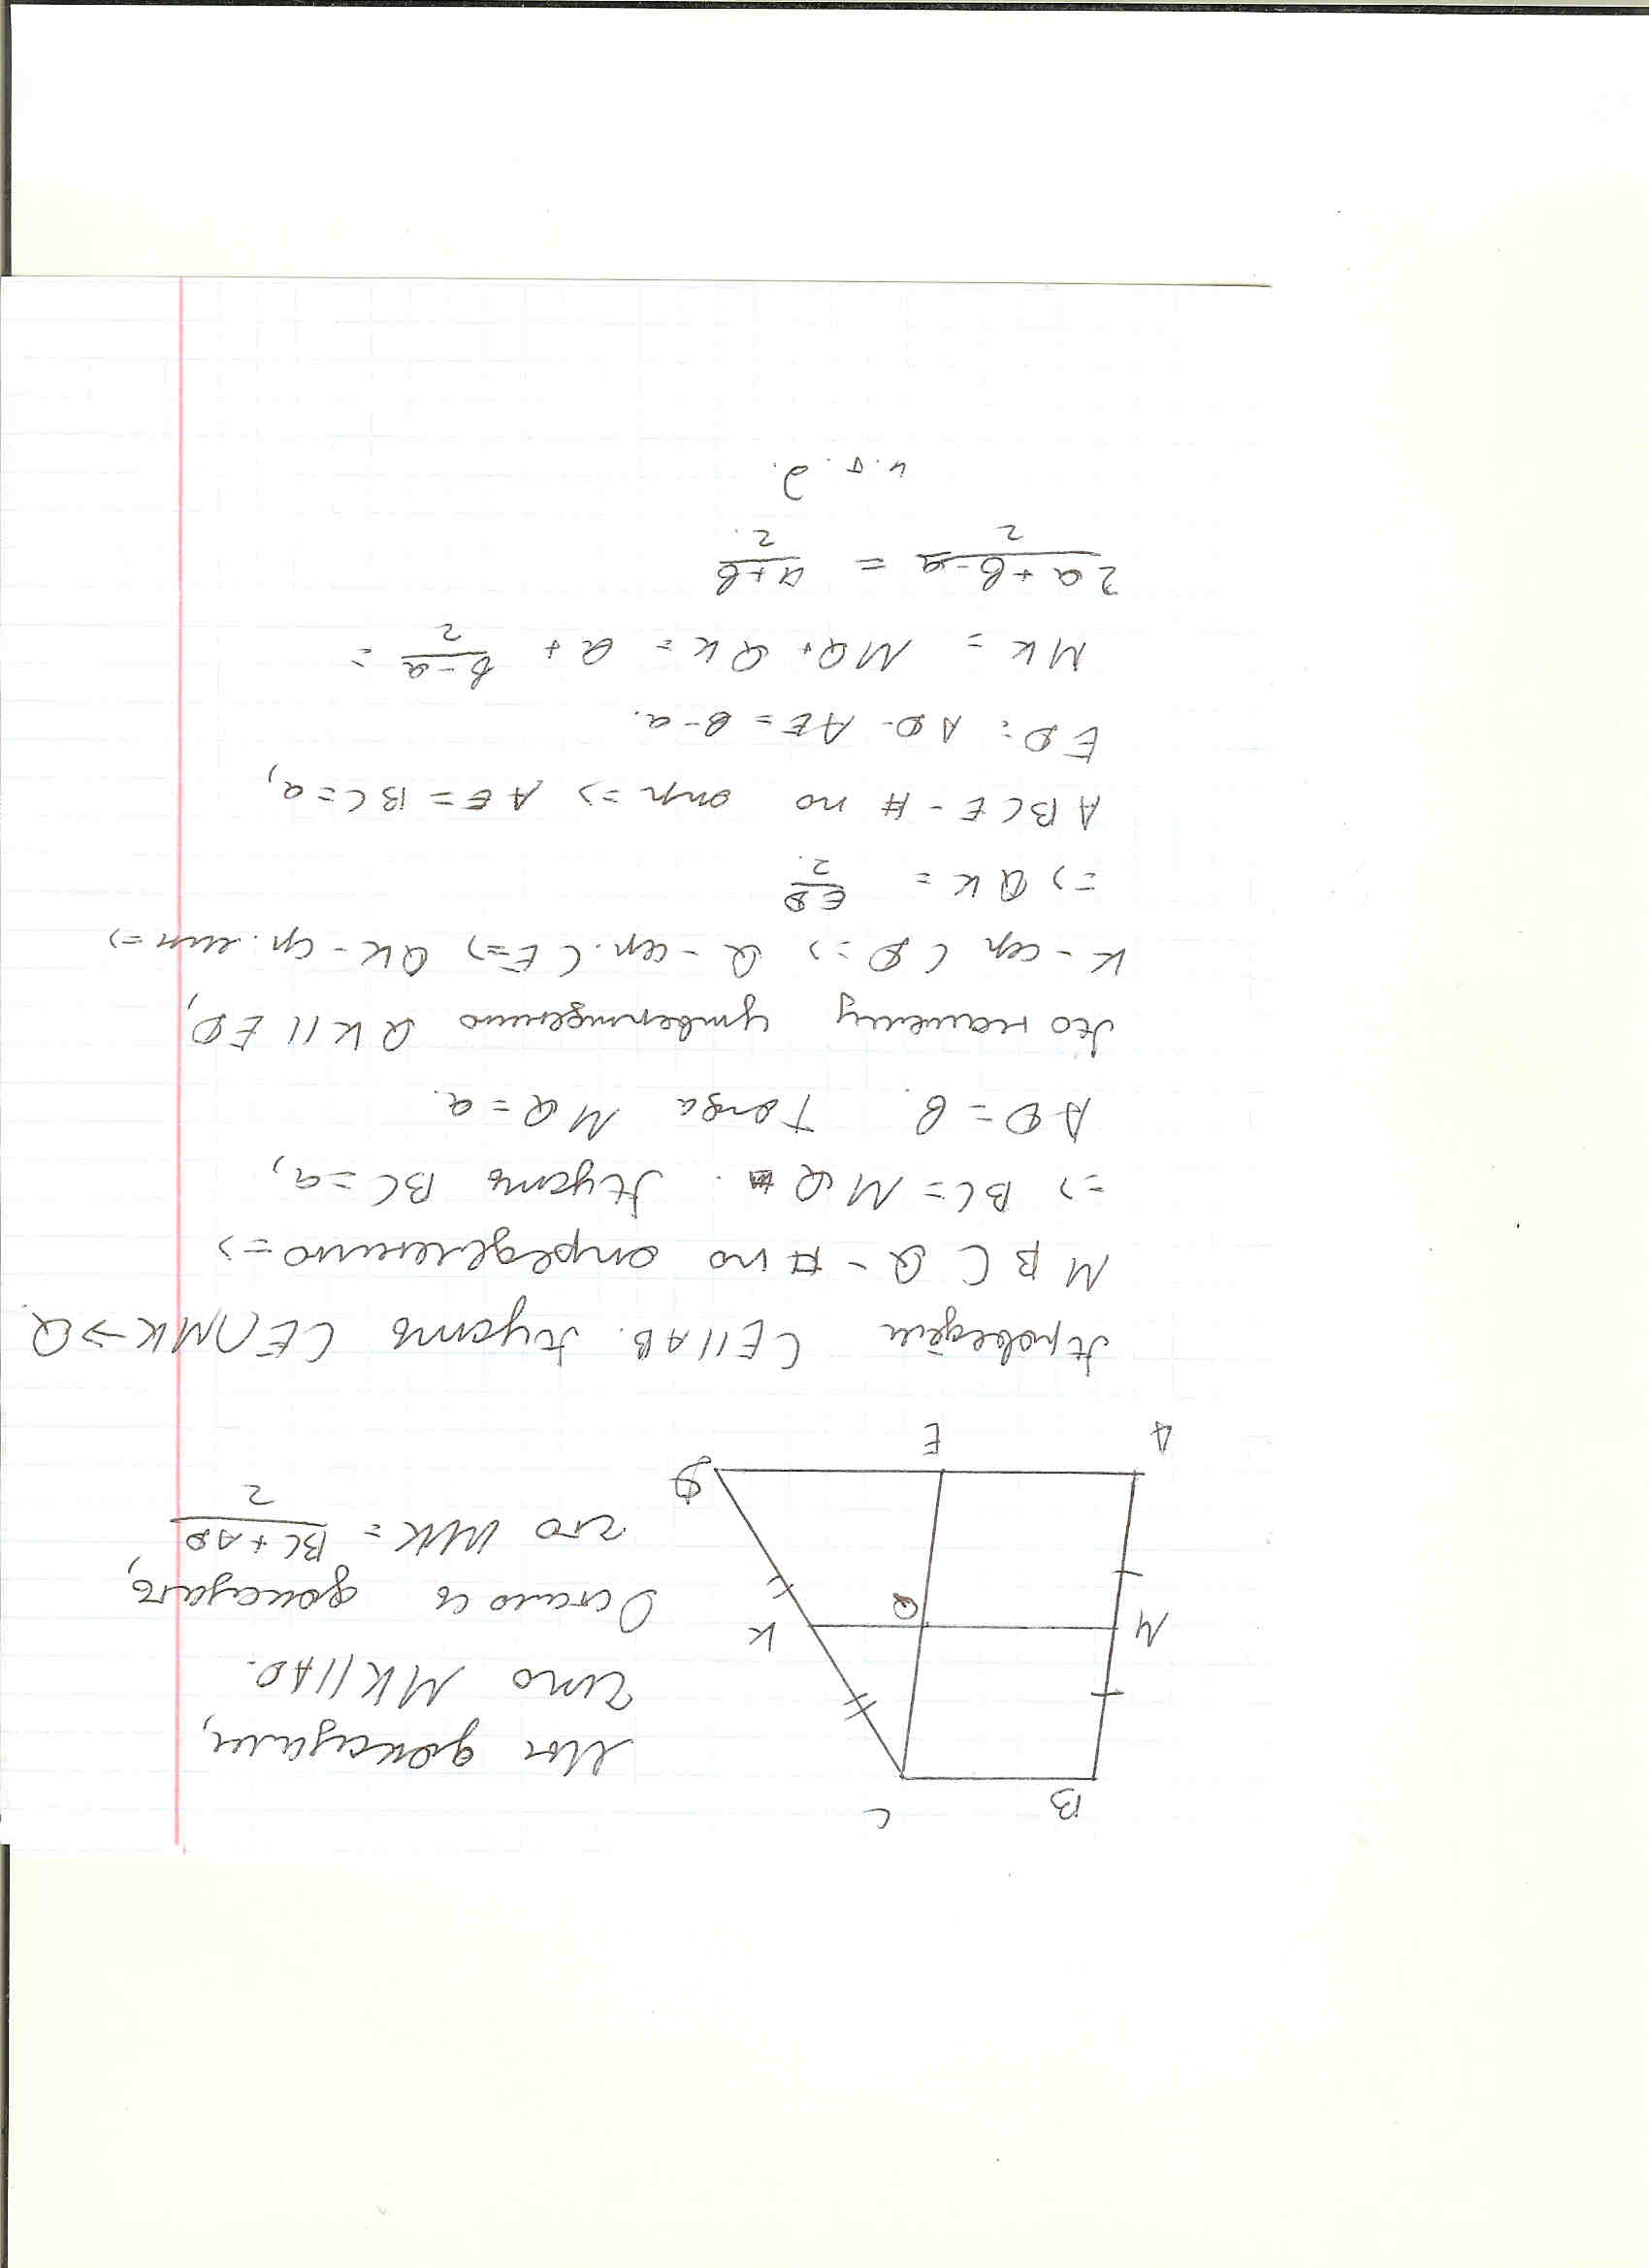 B C
Мы доказали,
что MK||AD.
M Q K
Осталось доказать,
что MK = BC + AD / 2
A E D
Проведём CE||AB. Пусть CE∩MK → Q.
MBCQ - # по определению =>
=> BC = MQ. Пусть BC = a,
AD = b. Тогда MQ = a.
По нашему утверждению QK || ED,
K - сер CD => Q - сер. CE => QK - ср. лин =>
=> QK = ED / 2.
ABCE - # по опр => AE = BC = a,
ED = AD - AE = b - a.
MK = MQ + QK = a + b-a / 2 =
2a + b - a / 2 = a+b / 2.
ч.т.д.